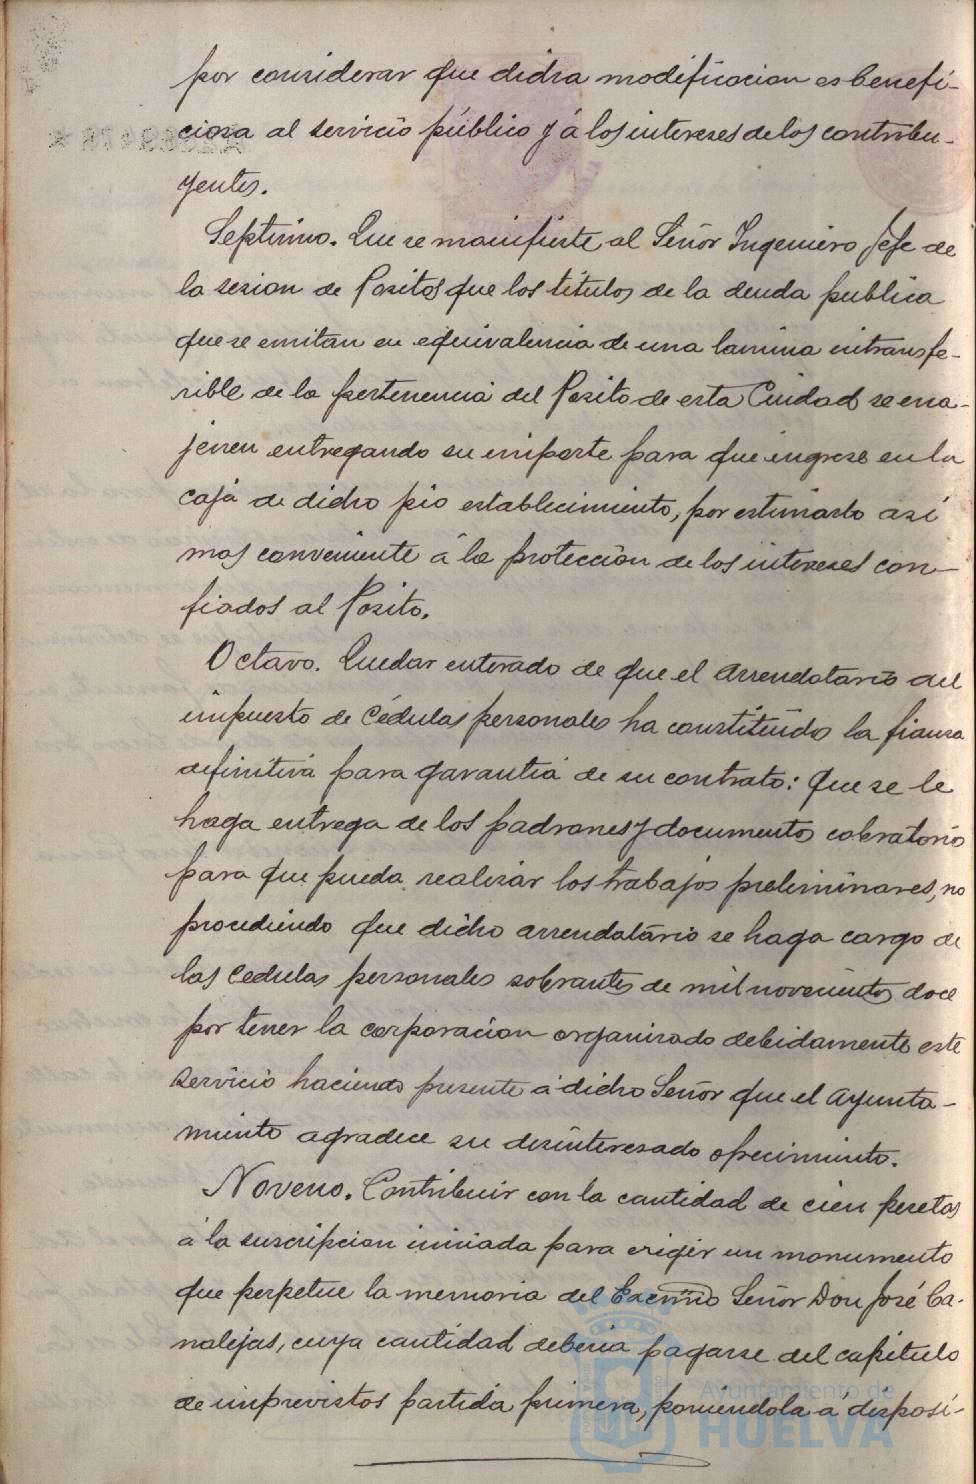 por considerar que dicha modificacion es benefi-
ciosa al servicio público y á los intereses de los contribu-
yentes.
Septimo. Que se manifieste al Señor Ingeniero Jefe de
la sesion de Pósitos que los títulos de la deuda publica
que se emitan en equivalencia de una lamina intransfe-
rible de la pertenencia del Posito de esta Ciudad se ena-
jenen entregando su importe para que ingrese en la
caja de dicho pio establecimiento, por estimarlo así
mas conveniente á la protección de los intereses con-
fiados al Posito.
Octavo. Quedar enterado de que el arrendatario del
impuesto de Cédulas personales ha constituido la fianza
definitiva para garantia de su contrato: Que se le
haga entrega de los padrones y documentos cobratorios
para que pueda realizar los trabajos preliminares, no
procediendo que dicho arrendatario se haga cargo de
las cedulas personales sobrantes de mil novecientos doce
por tener la corporacion organizado debidamente este
servicio haciendo presente á dicho Señor que el Ayunta-
miento agradece su desinteresado ofrecimiento.
Noveno. Contribuir con la cantidad de cien pesetas
á la suscripcion iniciada para erigir un monumento
que perpetue la memoria del Excmo Señor Don José Ca-
nalejas, cuya cantidad deberia pagarse del capitulo
de imprevistos partida primera, poniendola á disposi-
Ayuntamiento de
HUELVA